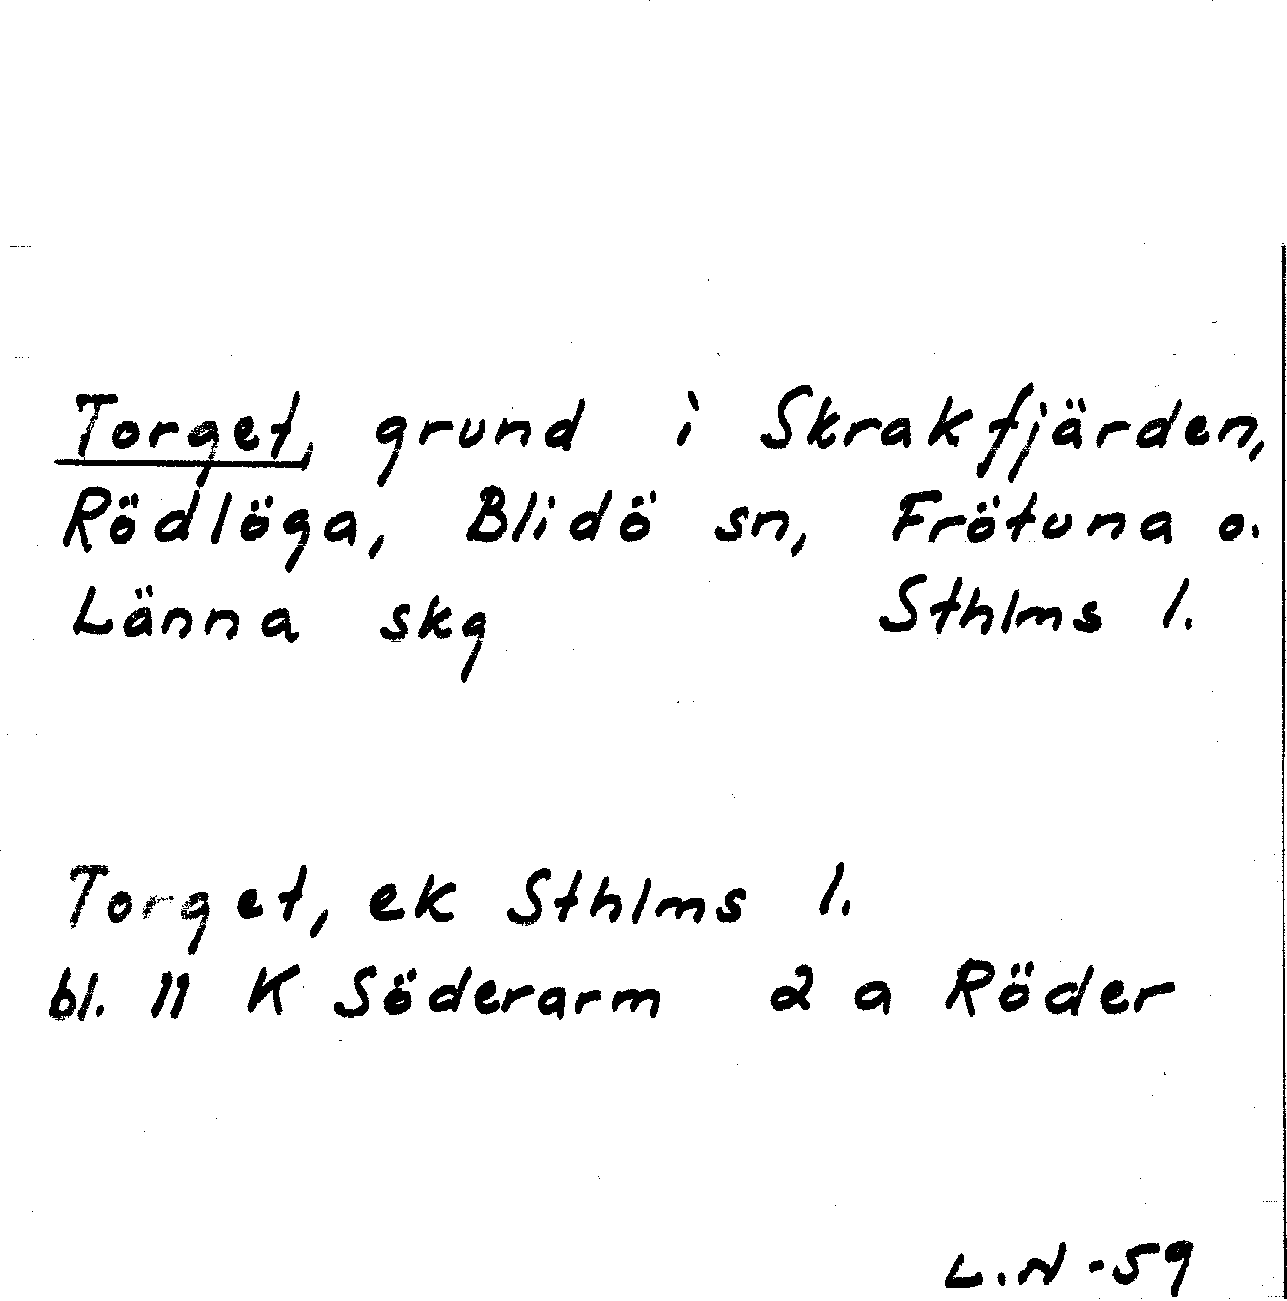 Torget, grund i Skrakfjärden,
Rödlöga, Blidö sn, Frötuna o.
Länna skg Sthlms l.
Torget, ek Sthlms l.
bl. 11 K Söderarm 2 a Röder
L.N -59